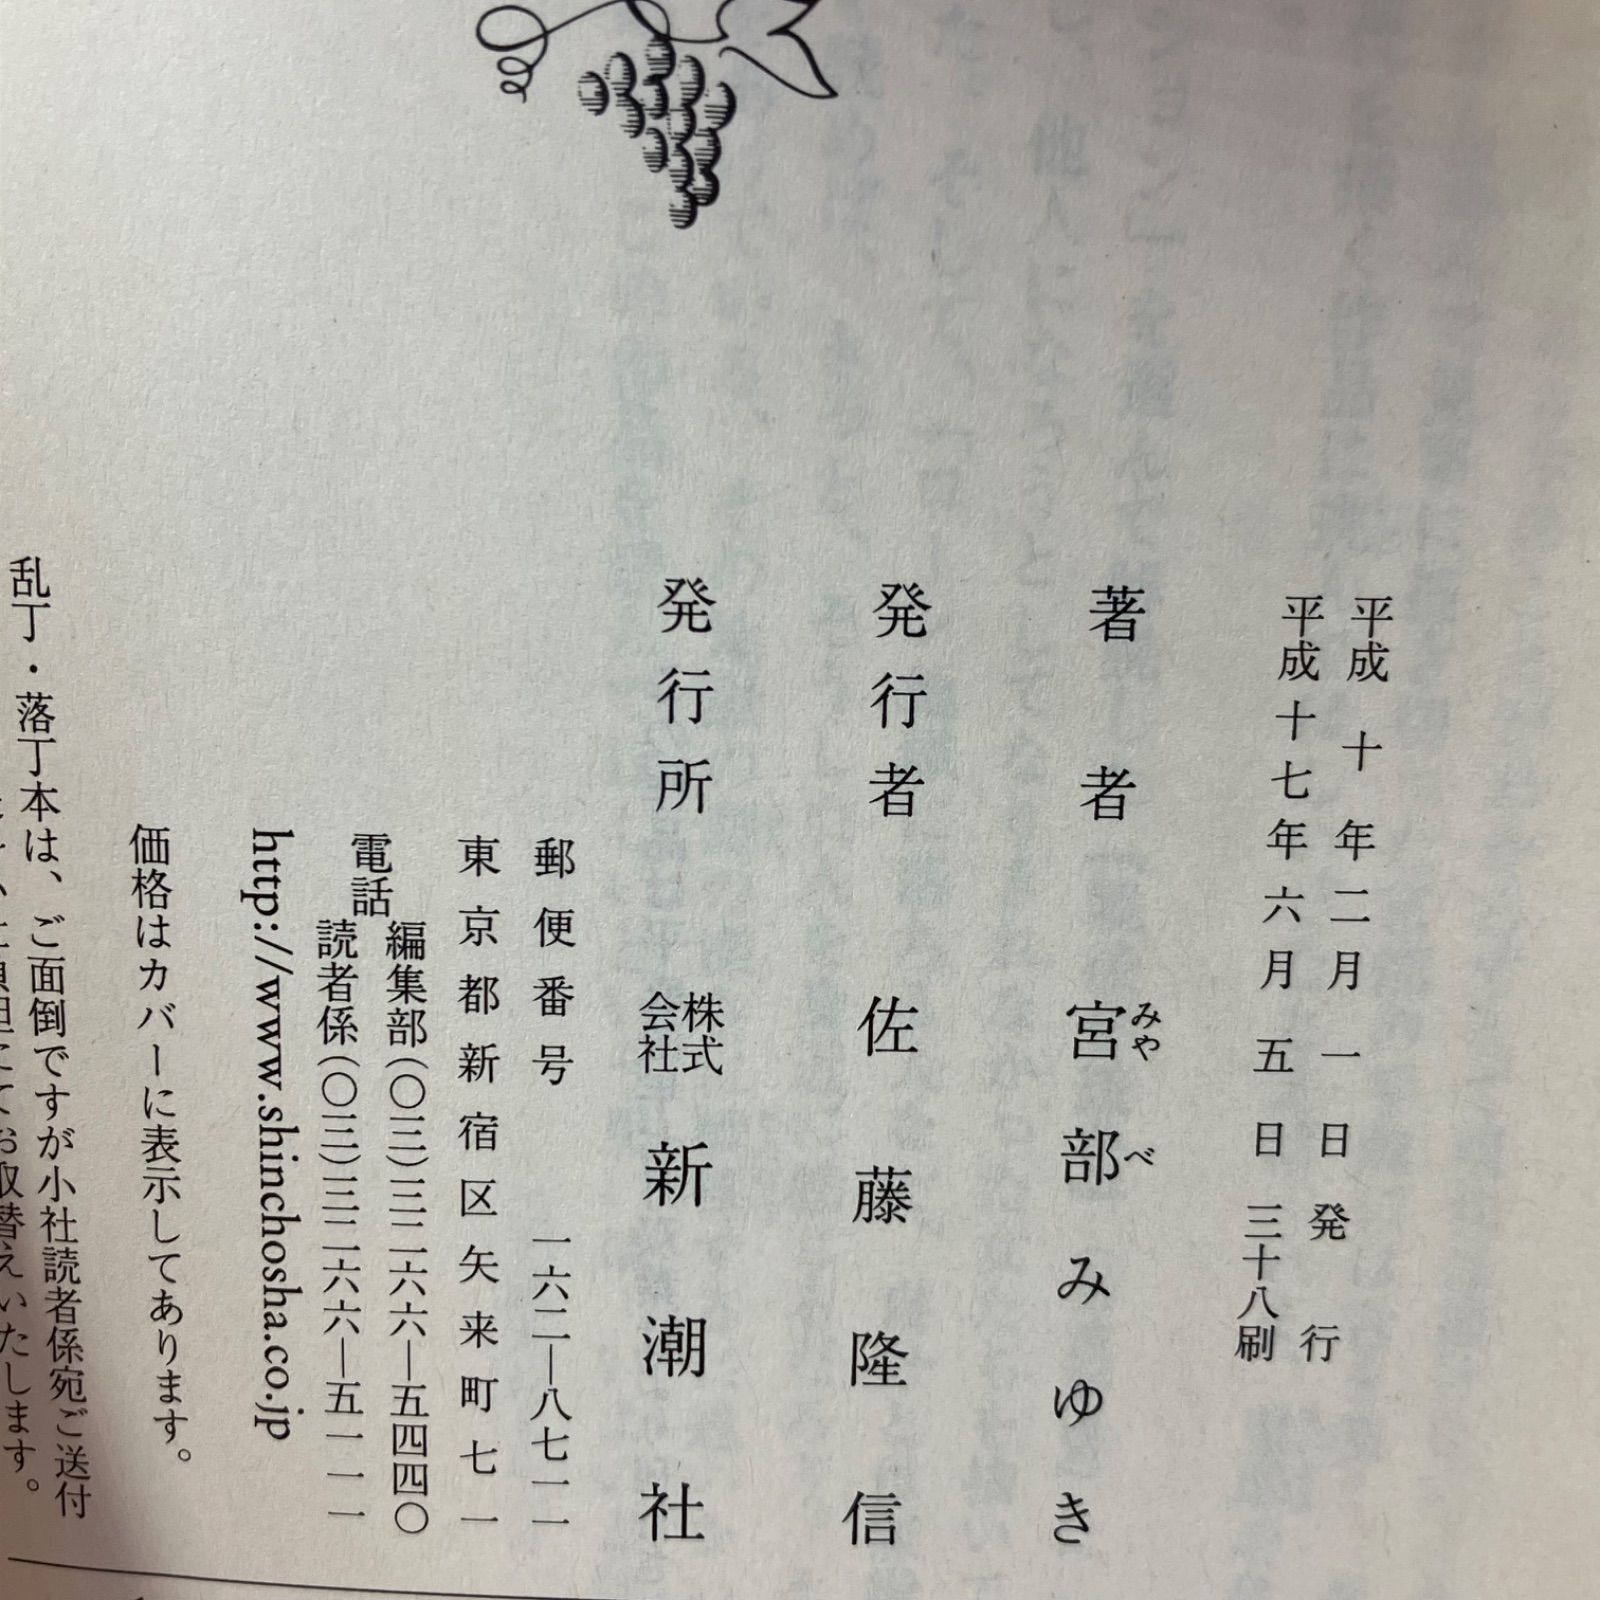 平成 十 年 二 月 一 日 発 行
平成十七年 六 月 五 日 三十八刷
著 者 宮部みゆき
みや べ
発行者 佐藤隆信
発行所 株式会社 新潮社
郵便番号 一六二―八七一一
東京都新宿区矢来町七一
電話 編集部(〇三)三二六六―五四四〇
読者係(〇三)三二六六―五一一一
http://www.shinchosha.co.jp
価格はカバーに表示してあります。
乱丁・落丁本は、ご面倒ですが小社読者係宛ご送付
負担にてお取替えいたします。